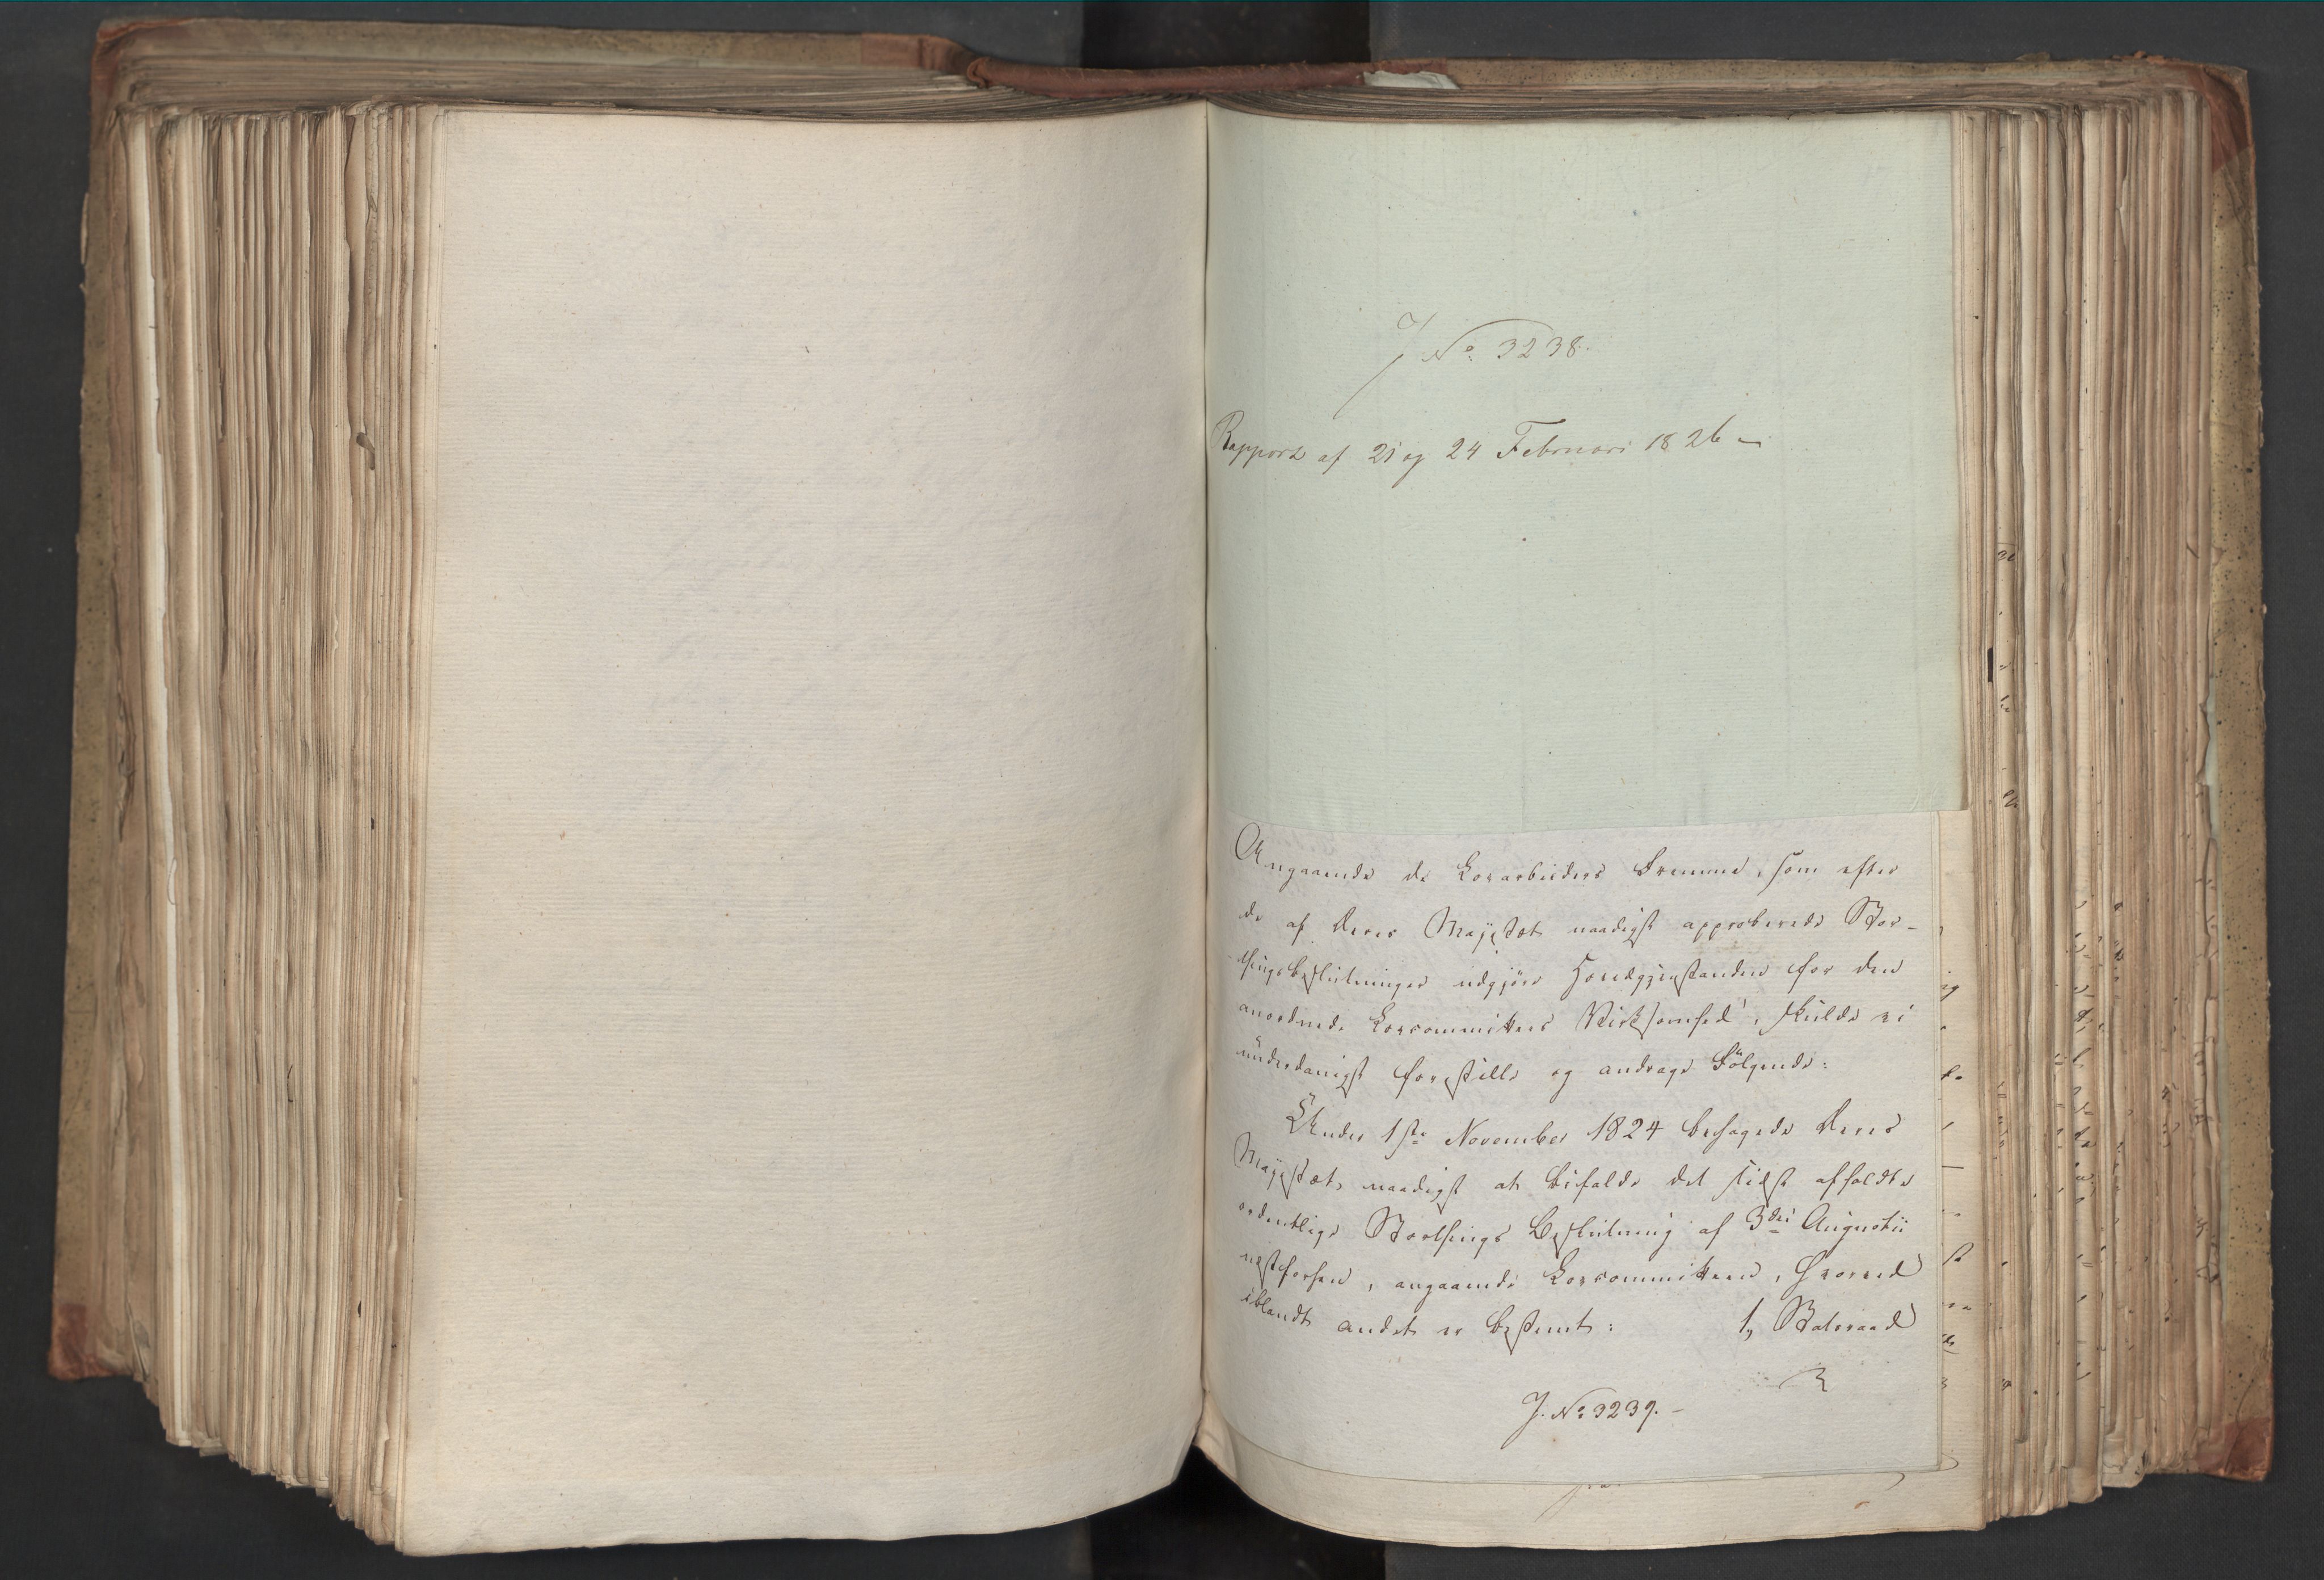 J No 3238.
Rapport af 21 og 24 Februari 1826
Angaaende de Lovarbeiders Fremme, som efter
de af Deres Majestæt naadigst approberede Stor-
thingsbeslutninger udgjøre Hovedgjenstanden for den
anordnede Lovcommittees Virksomhed, skulde vi
underdanigst forestille og andrage Følgende:
Under 1ste November 1824 behagede Deres
Majestæt, naadigst at bifalde det sidst afholdte
ordentlige Storthings Beslutning af 3die Augustii
nestforhen, angaaende Lovcommitteen, hvorved
iblandt andet er bestemt: 1, Statsraad
J. No 3239.